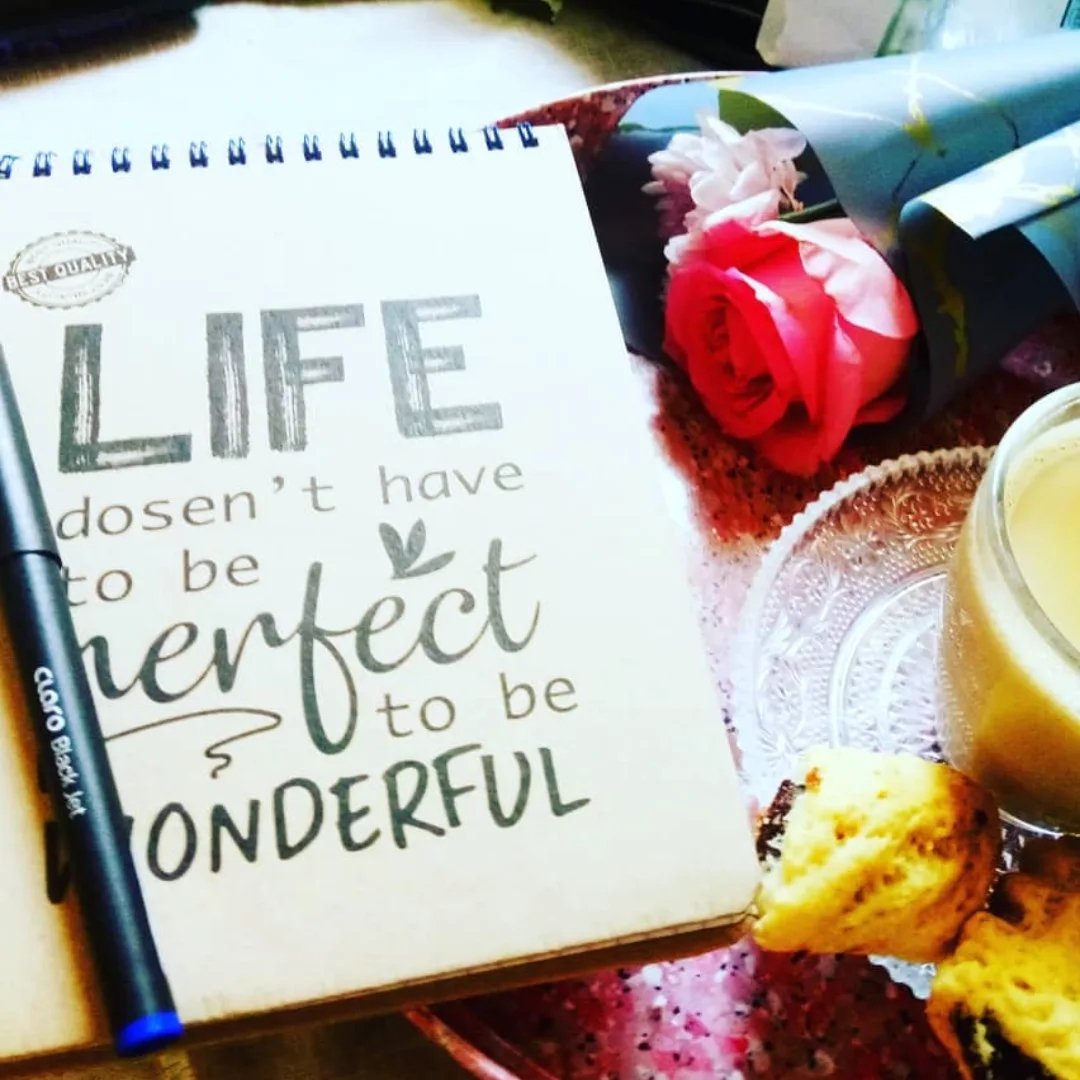 BEST QUALITY
LIFE
dosen't have
to be
perfect
to be
WONDERFUL
CLARO Black Jet